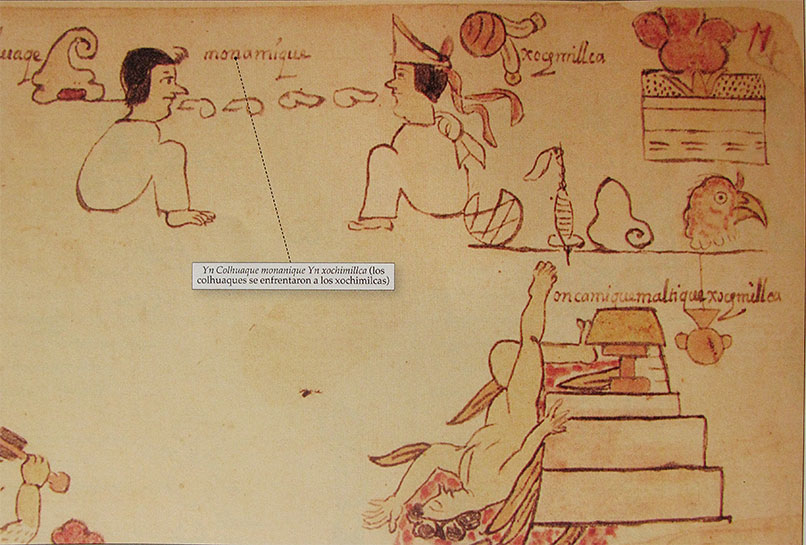 huaqe
monamique
xocemillca
Yn Colhuaque monanique Yn xochimillca (los
colhuaques se enfrentaron a los xochimilcas)
oncamiquemaltiquexocemillca